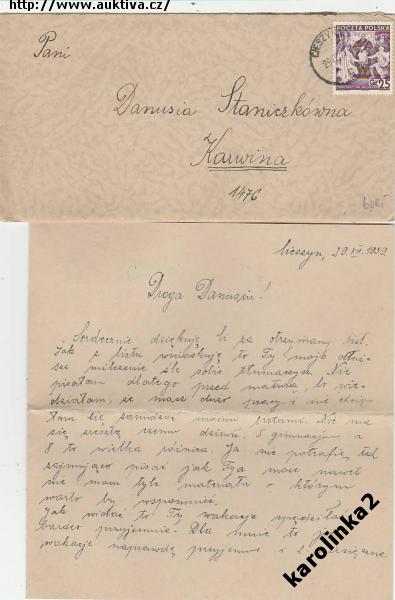 http://www.auktiva.cz/
CIESZYN
POCZTA POLSKA
Gr 25
Pani
Danusia Staniczkówna
Karwina
1476
Cieszyn, 29.VII.1939.
Droga Danusiu!
Serdecznie dziękuję Ci za otrzymany list.
Jak z listu wnioskuję to Ty moje dłuż-
sze milczenie źle sobie tłumaczysz. Nie
pisałam dlatego przed maturą, bo wie-
działam, że masz dużo pracy i nie chcia-
łam Cię zanudzać moimi listami. Nie ma
się zresztą czemu dziwić. 5 gimnazjum a
8 to wielka różnica. Ja nie potrafię tak
zajmująco pisać jak Ty a może nawet
nie mam tyle materiału o którym
warto by wspomnieć.
Jak widać to Ty wakacje spędziłaś
bardzo przyjemnie. Dla mnie to
wakacje naprawdę przyjemne
karolinka2